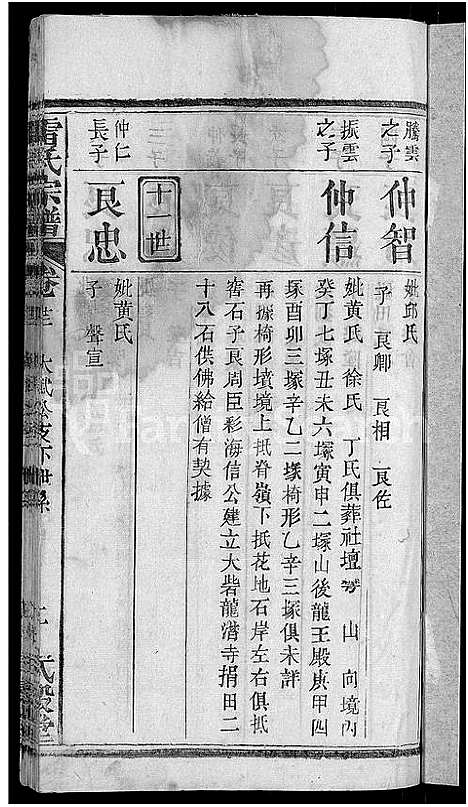 騰雲之子
仲智
妣邱氏
子 良卿 良相 良佐
振雲之子
仲信
妣黃氏 徐氏 丁氏俱葬社壇 山 向境內
癸丁七塚丑未六塚寅申二塚山後龍王殿庚甲四
塚酉卯三塚辛乙二塚椅形乙辛三塚俱未詳
再據椅形墳境上抵脊嶺下抵花地石岸左右俱抵
窖石子良周臣彩海信公建立大砦龍潛寺捐田二
十八石供佛給僧有契據
十一世
仲仁長子
良忠
妣黃氏
子 聲宣
雷氏宗譜
卷